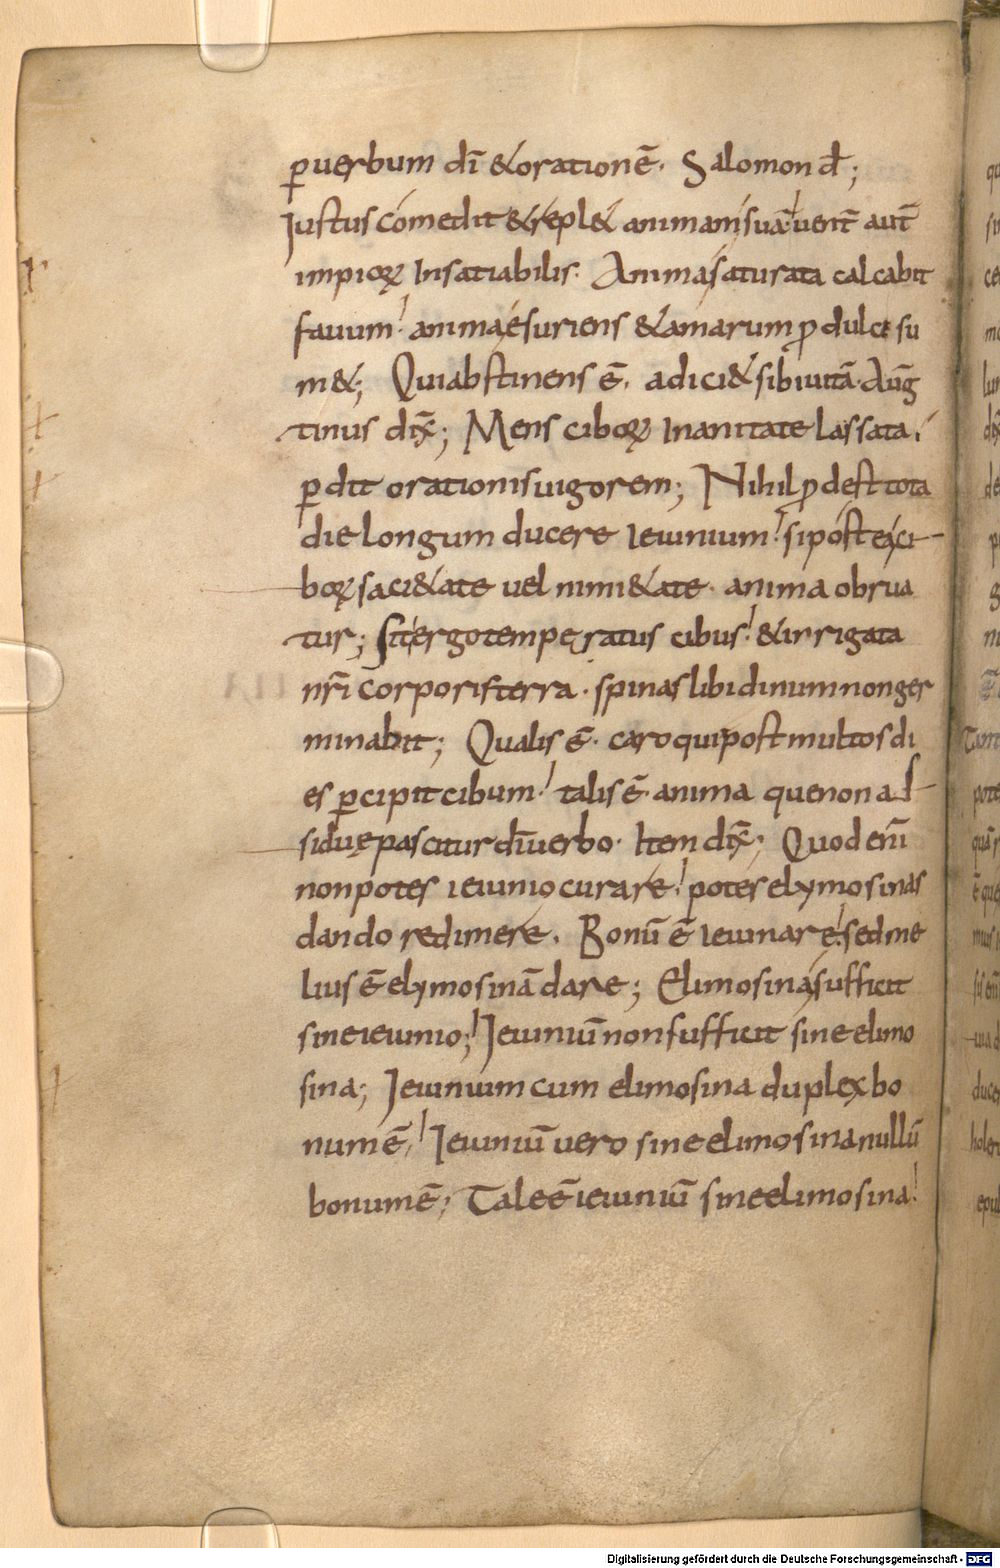 ꝑ uerbum dī & orationē. Salomon đ;
Iustus comedit & repl& animam suā. uent̄ aut̄
impioꝝ Insatiabilis. Anima saturata calcabit
fauum. anima esuriens & amarum ꝓ dulce su
m&; Qui abstinens ē. adici& sibi uitā. Auḡ
tinus dix̄; Mens ciboꝝ Inanitate lassata.
ꝑdit orationis uigorem; Nihil ꝓdest tota
die longum ducere Ieiunium. si post ea ci
boꝝ saci&ate uel nimi&ate. anima obrua
tur; Sit ergo temperatus cibus. & irrigata
nr̄i corporis terra. spinas libidinum non ger
minabit; Qualis ē. caro qui post multos di
es ꝑcipit cibum. talis ē anima que non ad
siduę pascitur dī uerbo. Item dix̄; Quod eni̅
non potes ieiunio curare. potes elymosinas
dando redimere. Bonū ē Ieiunare. sed me
lius ē elymosinā dare; Elimosina sufficit
sine ieiunio; Ieiuniū non sufficit sine elimo
sina; Ieiunium cum elimosina duplex bo
num ē. Ieiuniū uero sine elimosina nullū
bonum ē; Tale ē ieiuniū sine elimosina.
Digitalisierung gefördert durch die Deutsche Forschungsgemeinschaft - DFG